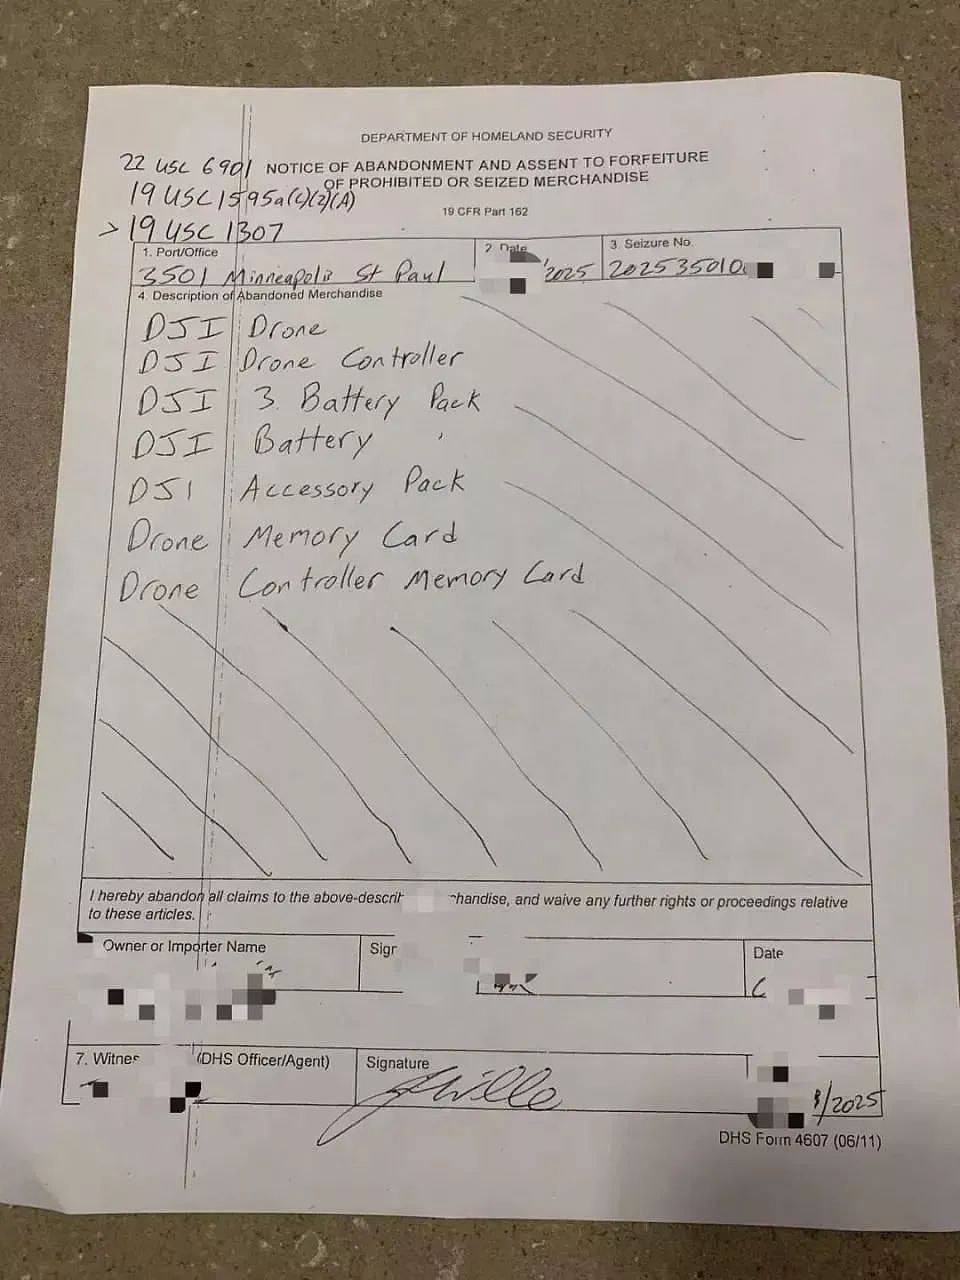 DEPARTMENT OF HOMELAND SECURITY
22 USC 6901 NOTICE OF ABANDONMENT AND ASSENT TO FORFEITURE
19 USC 1595a(c)(2)(A) OF PROHIBITED OR SEIZED MERCHANDISE
> 19 USC 1307 19 CFR Part 162
1. Port/Office 2. Date 3. Seizure No.
3501 Minneapolis St Paul /2025 20253501
4. Description of Abandoned Merchandise
DJI Drone
DJI Drone Controller
DJI 3 Battery Pack
DJI Battery
DJI Accessory Pack
Drone Memory Card
Drone Controller Memory Card
I hereby abandon all claims to the and waive any further rights or proceedings relative
to these articles.
Owner or Importer Name Date
7. (DHS Officer/Agent) Signature
/2025
DHS Form 4607 (06/11)